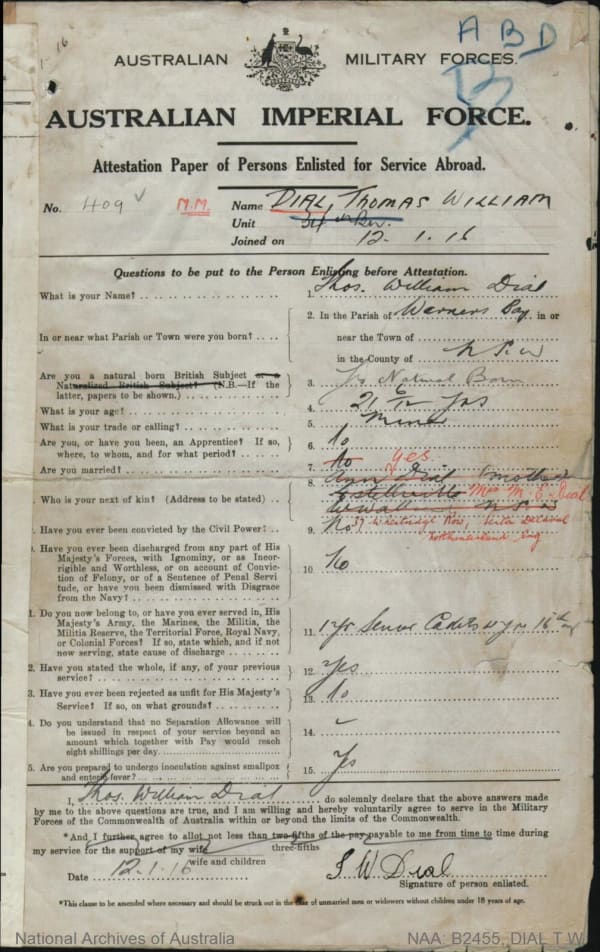 16
A B D
AUSTRALIAN MILITARY FORCES.
AUSTRALIAN IMPERIAL FORCE.
Attestation Paper of Persons Enlisted for Service Abroad.
No. 409 M.M. Name DIAL, THOMAS WILLIAM
Unit
Joined on 12.1.16
Questions to be put to the Person Enlisting before Attestation.
What is your Name? 1. Thos. William Dial
In or near what Parish or Town were you born? 2. In the Parish of Warners Bay in or
near the Town of
in the County of N.S.W
Are you a natural born British Subject or a
Naturalized British Subject? (N.B.—If the
latter, papers to be shown.) 3. Yes Natural Born
What is your age? 4. 21 Yrs
What is your trade or calling? 5. Miner
Are you, or have you been, an Apprentice? If so,
where, to whom, and for what period? 6. No
Are you married? 7. No Yes
Who is your next of kin? (Address to be stated) 8. Ann Dial (mother)
Mrs M. E. Dial
37 Row, Seaton Delaval
Northumberland Eng
. Have you ever been convicted by the Civil Power? 9. No
. Have you ever been discharged from any part of His
Majesty's Forces, with Ignominy, or as Incor-
rigible and Worthless, or on account of Convic-
tion of Felony, or of a Sentence of Penal Servi-
tude, or have you been dismissed with Disgrace
from the Navy? 10. No
1. Do you now belong to, or have you ever served in, His
Majesty's Army, the Marines, the Militia, the
Militia Reserve, the Territorial Force, Royal Navy,
or Colonial Forces? If so, state which, and if not
now serving, state cause of discharge 11. 1 yr Senior Cadets 16th
2. Have you stated the whole, if any, of your previous
service? 12. Yes
3. Have you ever been rejected as unfit for His Majesty's
Service? If so, on what grounds? 13. No
4. Do you understand that no Separation Allowance will
be issued in respect of your service beyond an
amount which together with Pay would reach
eight shillings per day. 14. -
5. Are you prepared to undergo inoculation against smallpox
and enteric fever? 15. Yes
I, Thos. William Dial do solemnly declare that the above answers made
by me to the above questions are true, and I am willing and hereby voluntarily agree to serve in the Military
Forces of the Commonwealth of Australia within or beyond the limits of the Commonwealth.
*And I further agree to allot not less than two-fifths of the pay payable to me from time to time during
three-fifths
my service for the support of my wife
wife and children
Date 12.1.16 T. W. Dial
Signature of person enlisted.
*This clause to be amended where necessary and should be struck out in the case of unmarried men or widowers without children under 18 years of age.
National Archives of Australia NAA: B2455, DIAL T W